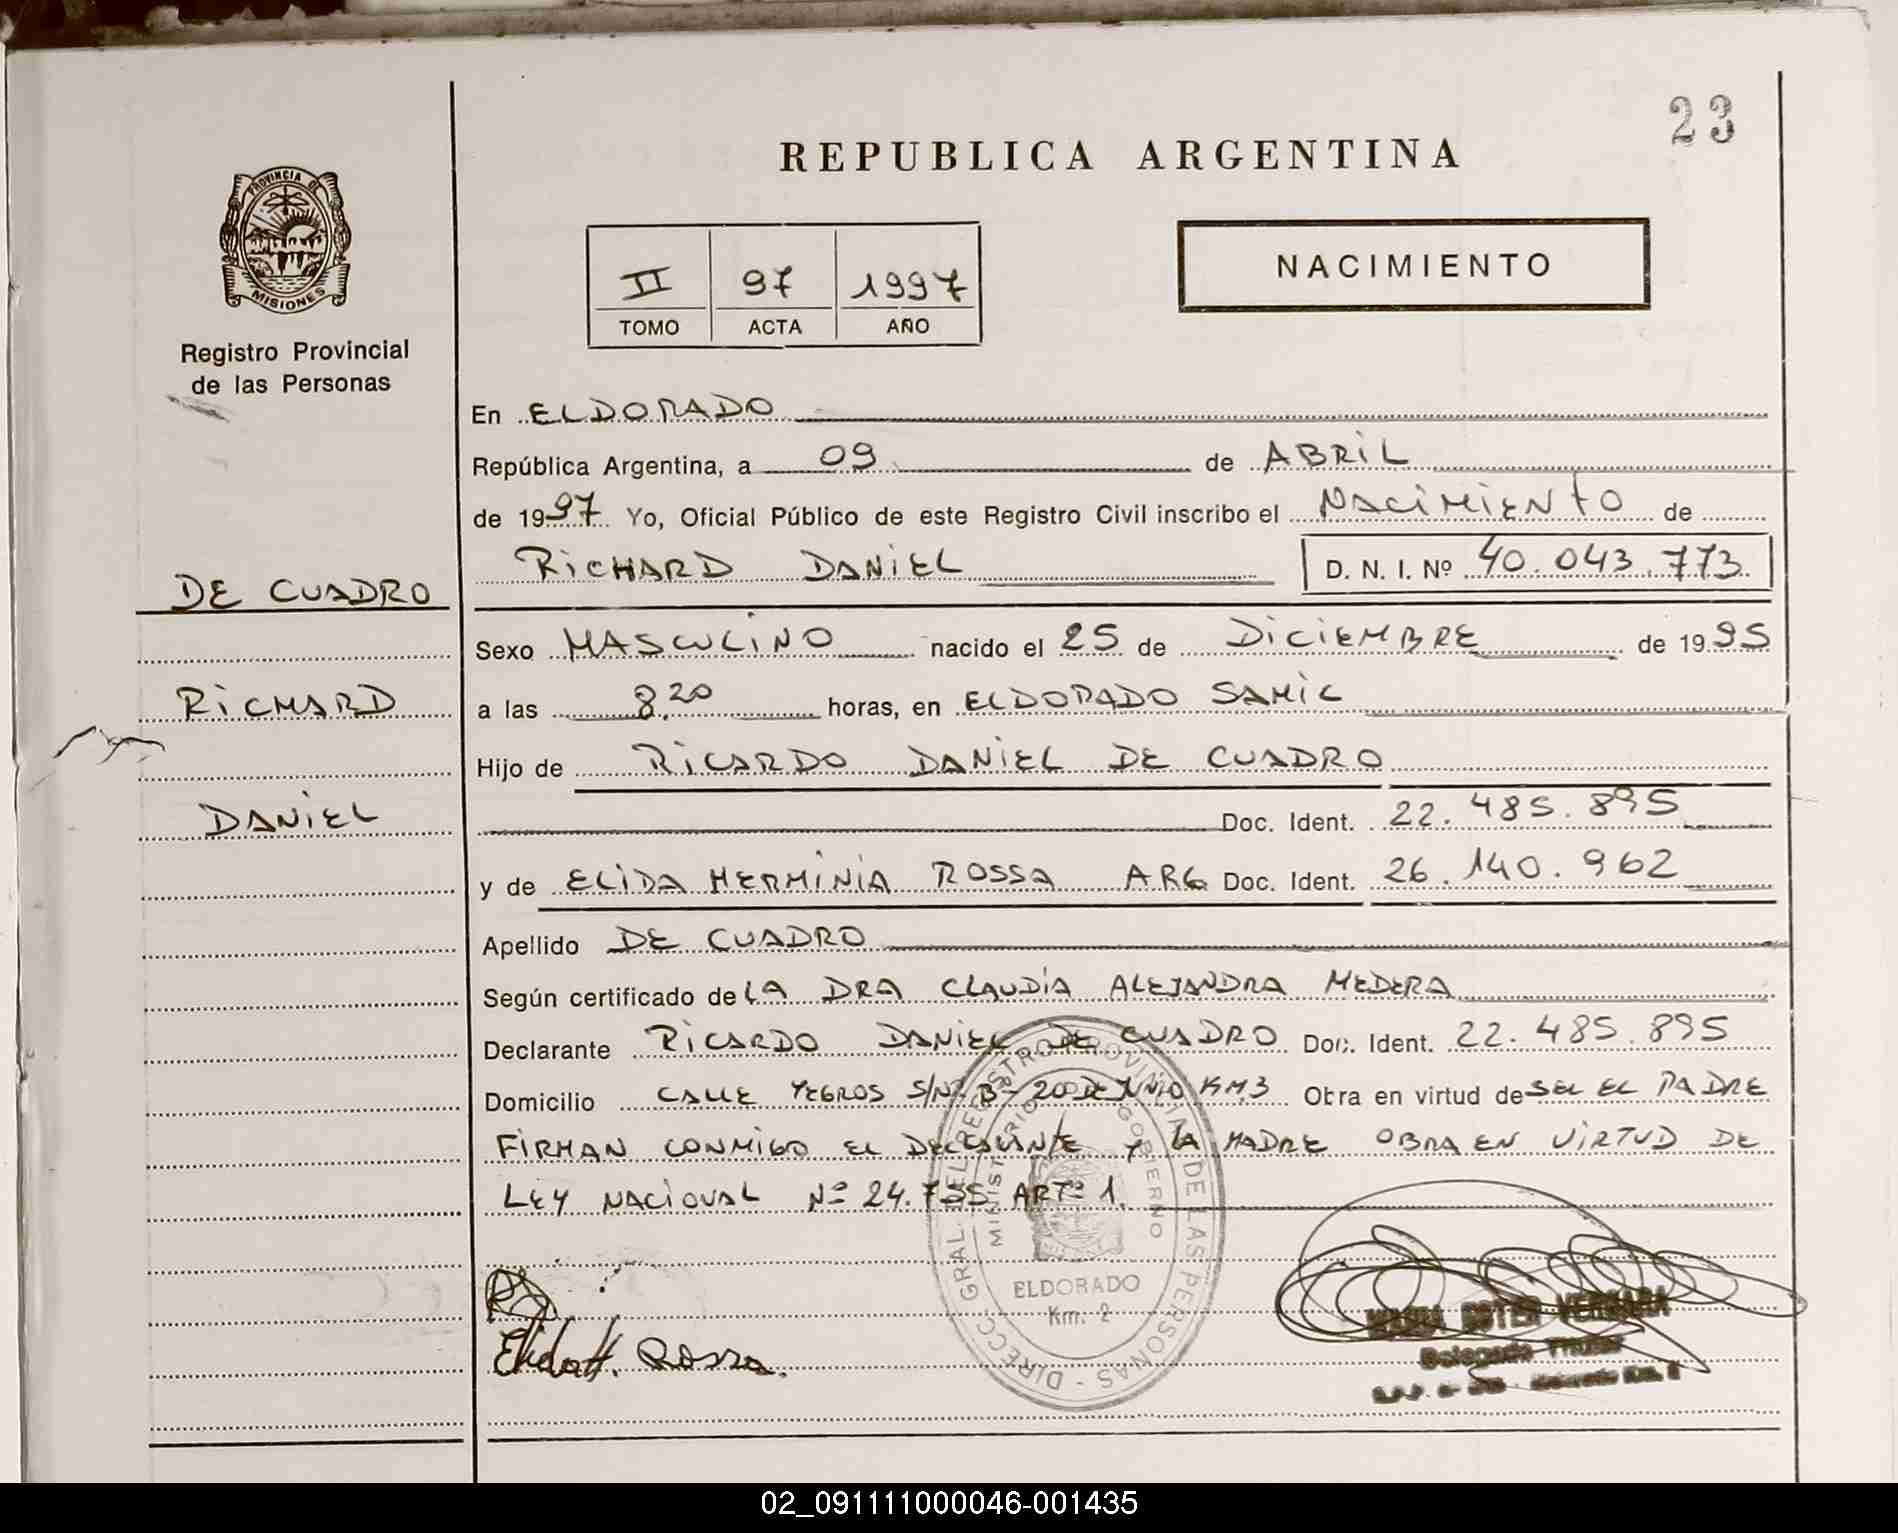 23
REPUBLICA ARGENTINA
PROVINCIA DE
MISIONES
Registro Provincial
de las Personas
II 97 1997
TOMO ACTA AÑO
NACIMIENTO
En ELDORADO
República Argentina, a 09 de ABRIL
de 1997 Yo, Oficial Público de este Registro Civil inscribo el NACIMIENTO de
RICHARD DANIEL D. N. I. Nº 40.043.773
DE CUADRO
Sexo MASCULINO nacido el 25 de DICIEMBRE de 1995
RICHARD
a las 8,20 horas, en ELDORADO SAMIC
Hijo de RICARDO DANIEL DE CUADRO
DANIEL
Doc. Ident. 22.485.895
y de ELIDA HERMINIA ROSSA ARG Doc. Ident. 26.140.962
Apellido DE CUADRO
Según certificado de LA DRA CLAUDIA ALEJANDRA MEDERA
Declarante RICARDO DANIEL DE CUADRO Doc. Ident. 22.485.895
Domicilio CALLE YEGROS S/Nº Bº 20 DE JUNIO KM,3 Obra en virtud de SEL EL PADRE
FIRMAN CONMIGO EL DECLARANTE Y LA MADRE OBRA EN VIRTUD DE
LEY NACIONAL Nº 24.755 ARTº 1.
DIRECC. GRAL. DEL REGISTRO PROVINCIAL DE LAS PERSONAS
MINISTERIO DE GOBIERNO
ELDORADO
Km. 2
Elida H. Rossa.
MARIA ESTER VERGARA
Delegada Titular
02_091111000046-001435